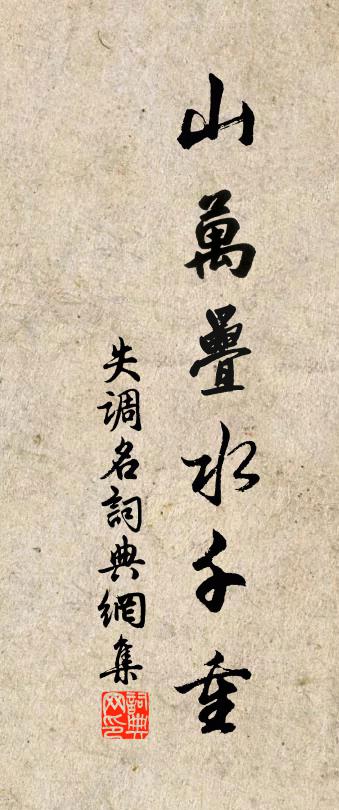 山萬疊水千重
失調名詞典網集
詞典網印